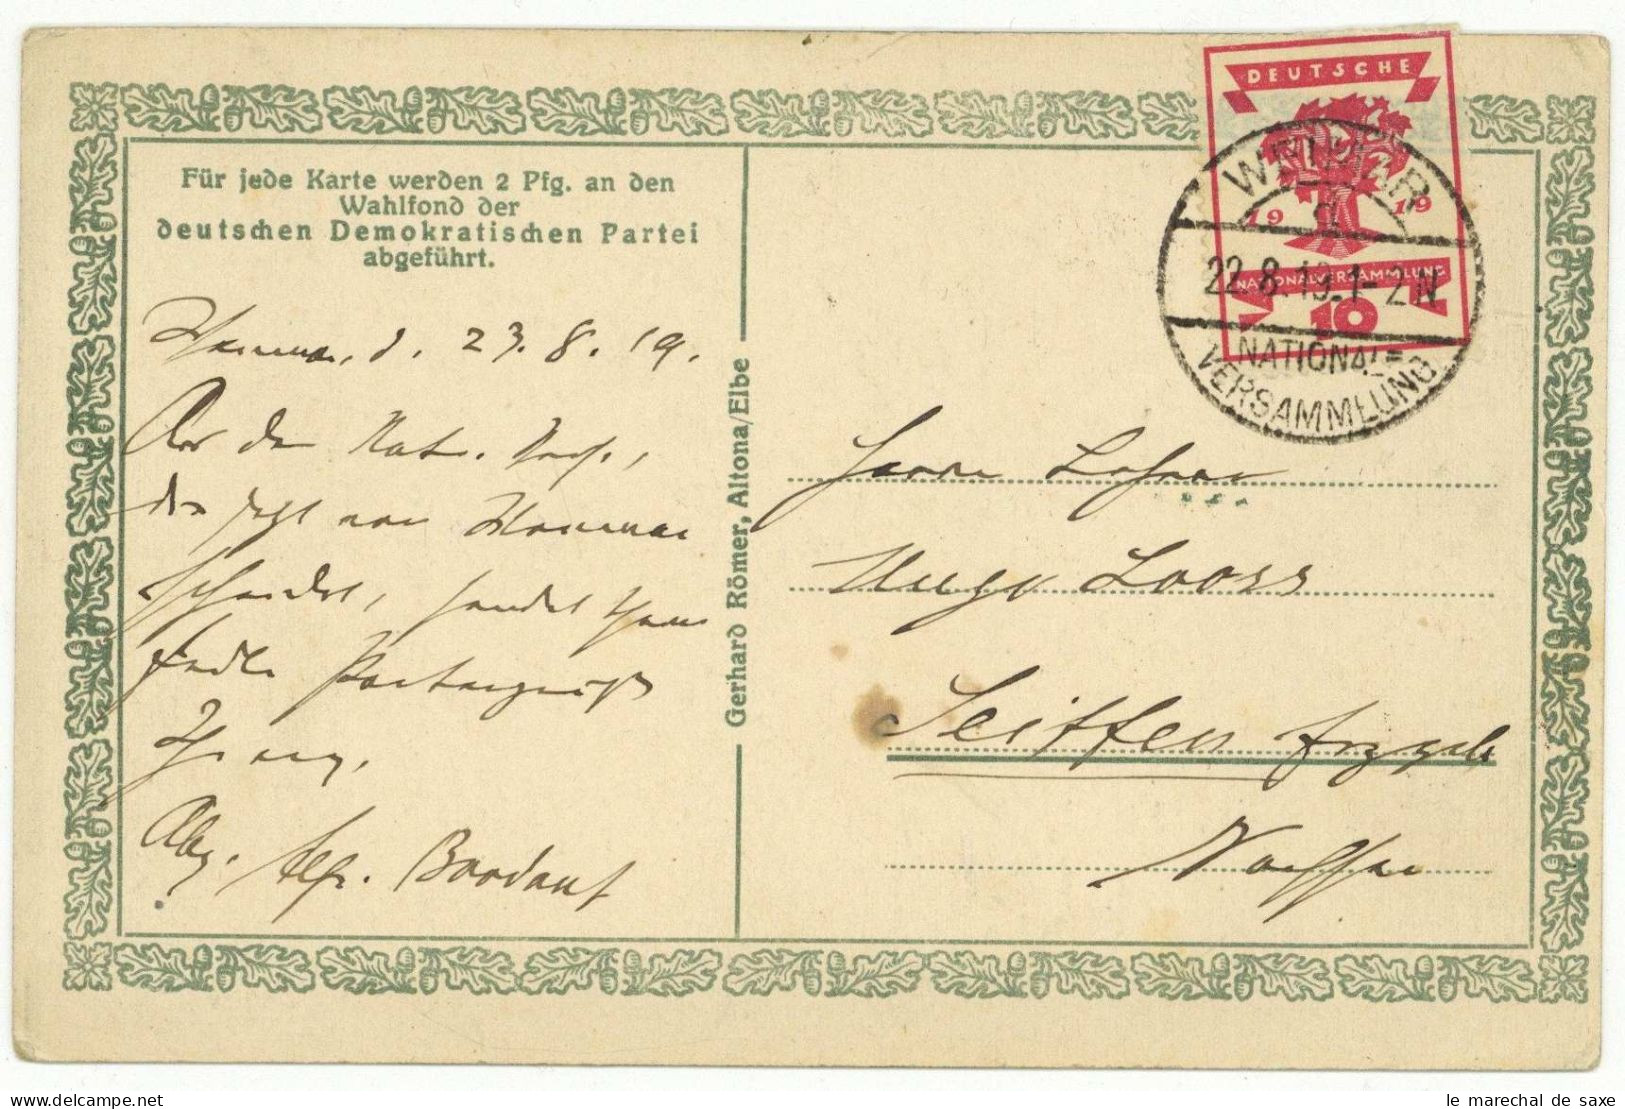 Für jede Karte werden 2 Pfg. an den
Wahlfond der
deutschen Demokratischen Partei
abgeführt.
Weimar, d. 23. 8. 19.
Aus der Nat. Vers.,
die jetzt von Weimar
scheidet, sendet Ihnen
Parteigruß
Ihr
Abg. Alfr. Brodauf
Gerhard Römer, Altona/Elbe
DEUTSCHE
19 19
NATIONALVERSAMMLUNG
10
WEIMAR
d
22.8.19.1-2N
NATIONAL=
VERSAMMLUNG
Herrn Lehrer
Hugo Looss
Seiffen Erzgeb.
le marechal de saxe